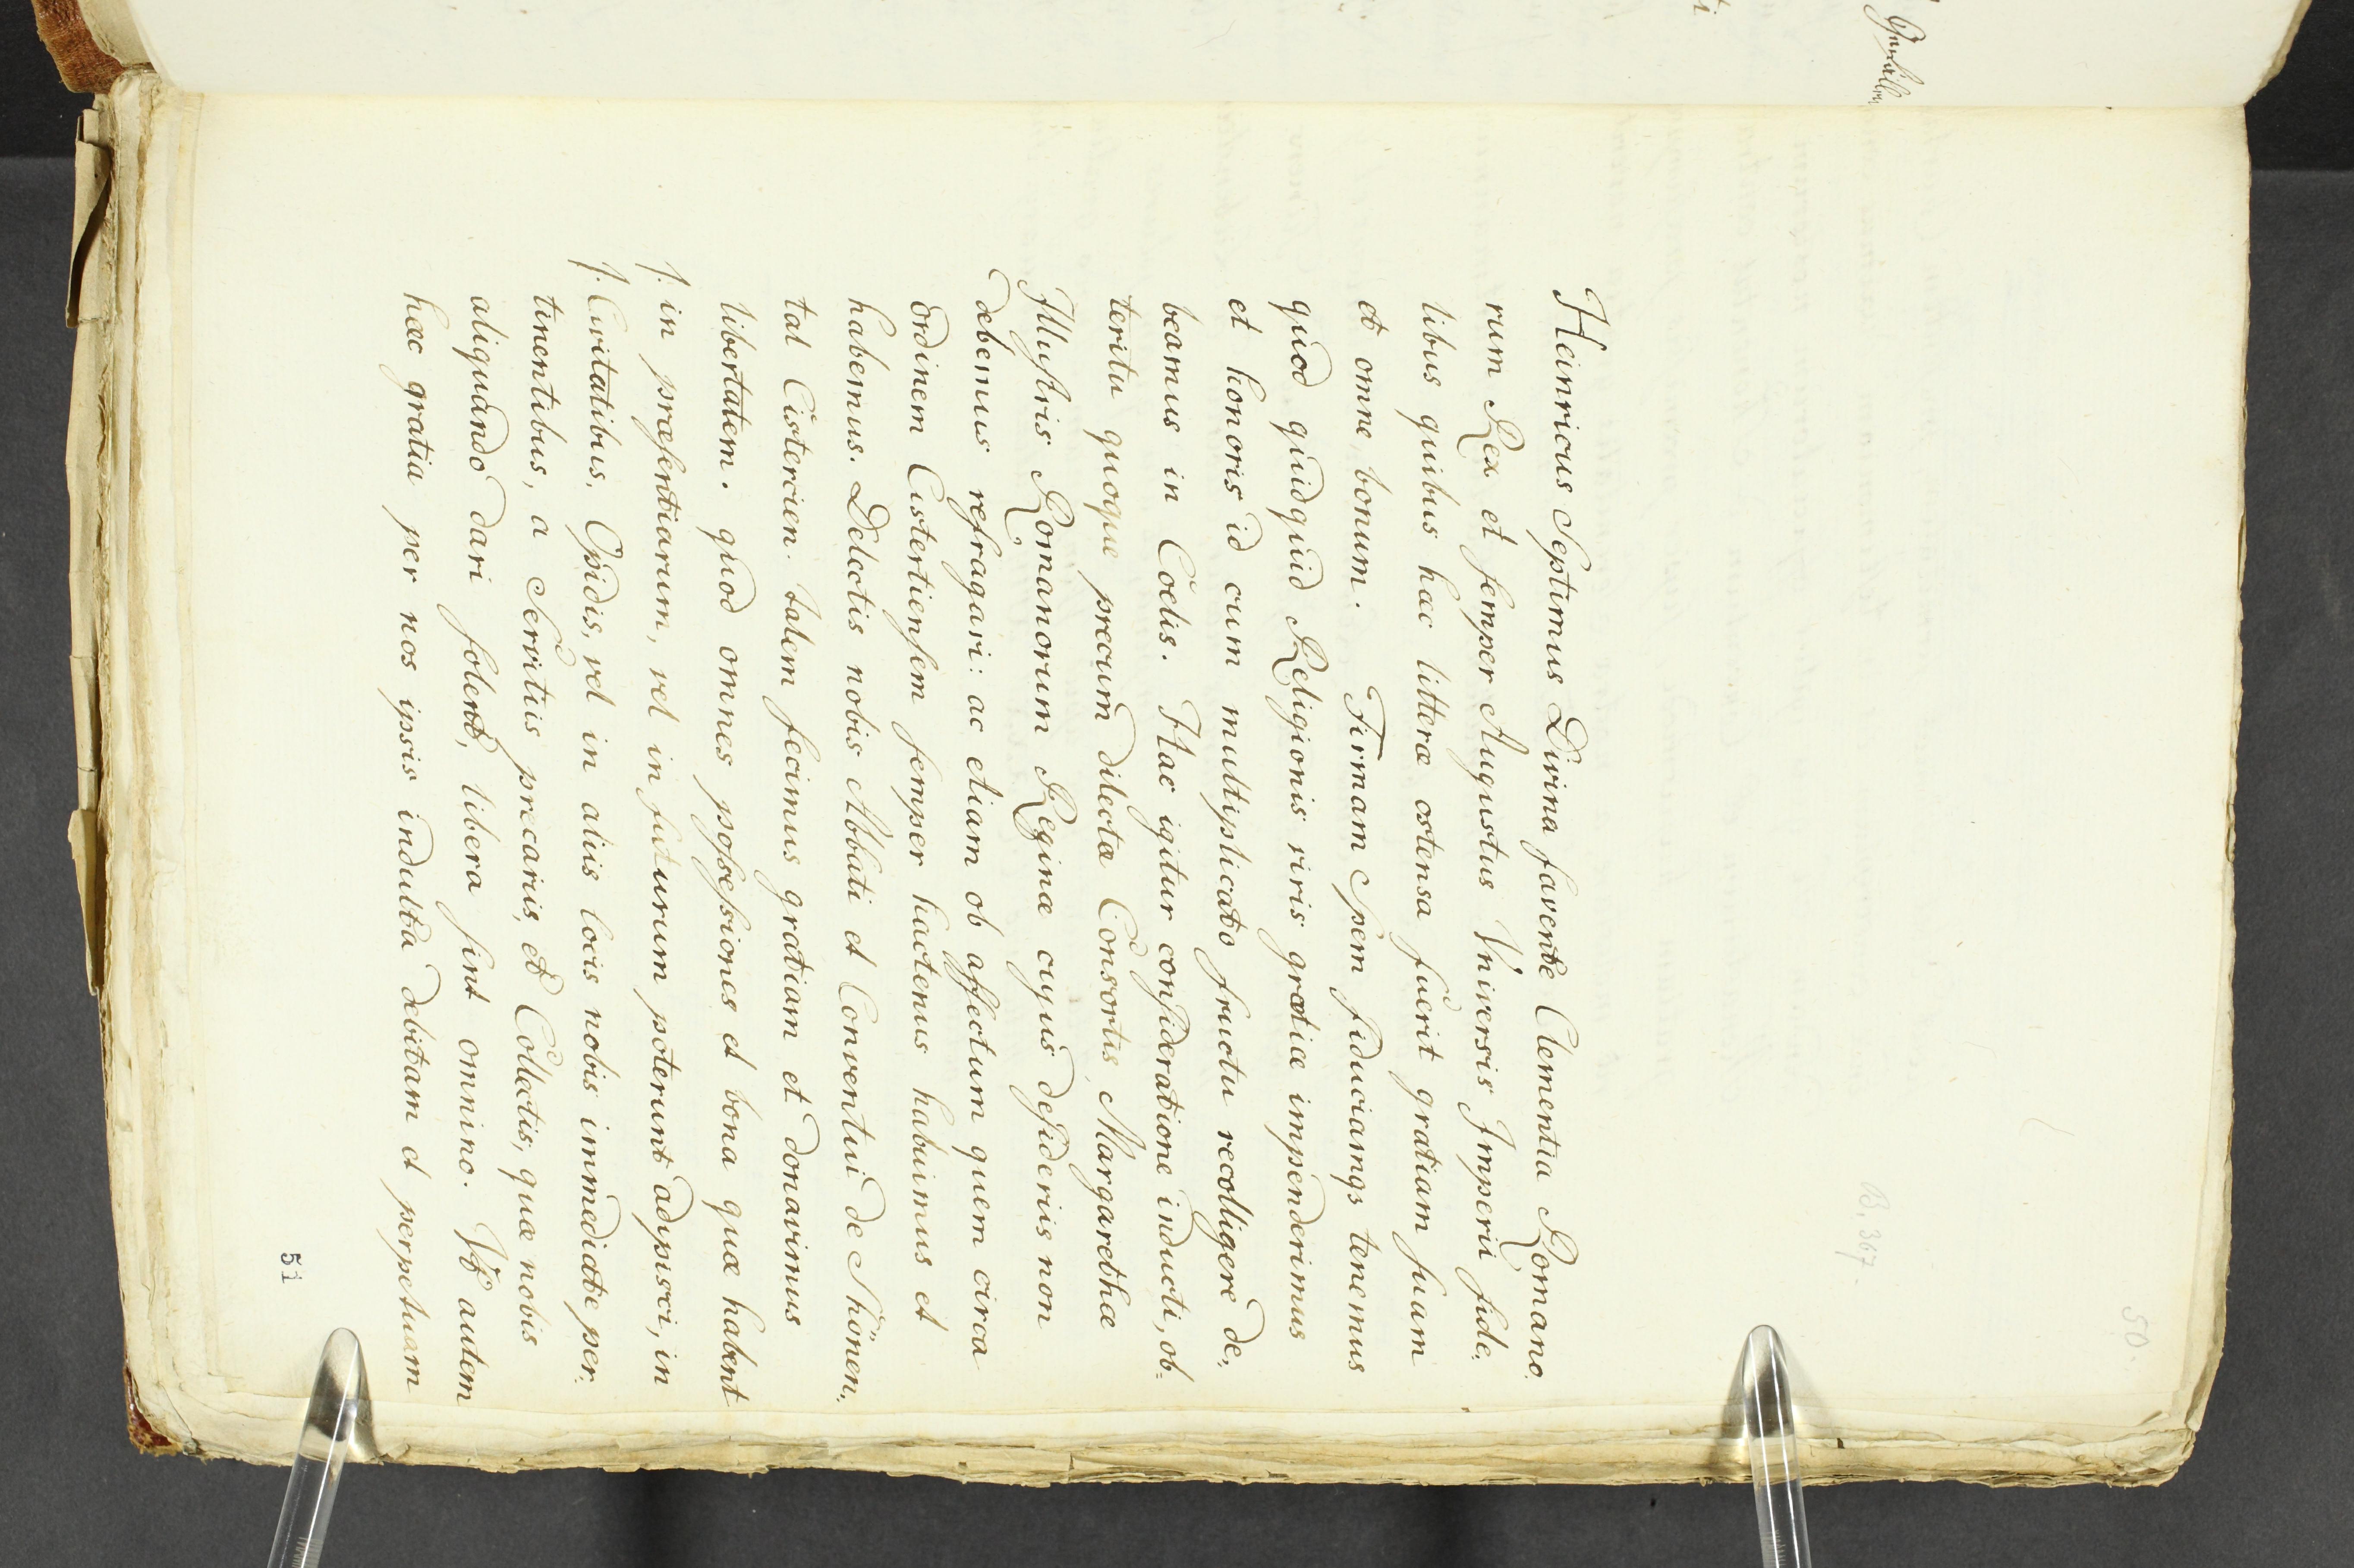 50.
B. 367.
Heinricus Septimus Divina favente Clementia Romano
rum Rex et semper Augustus Vniversis Imperii fide,
libus quibus hæc litteræ ostensa fuerit gratiam suam
et omne bonum. Firmam Spem fiduciamqs tenemus
quod quidquid Religionis viris gratiæ impenderimus
et honoris id cum multiplicato fructu recolligere de,
beamus in Coelis. Hac igitur consideratione inducti, ob-
teritu quoque precum dilectæ Consortis, Margarethæ
Illustris Romanorum Reginæ cujus desideriis non
debemus refragari: ac etiam ob affectum quem circa
ordinem Cistertiensem semper hactenus habuimus et
habemus. Delectis nobis Abbati et Conventui de Shönen,
tal Cistercien. talem fecimus gratiam et donavimus
libertatem. quod omnes possessiones et bona quæ habent
/: in præsentiarum, vel in futurum poterunt adipisci, in
/: Civitatibus, Opidis, vel in aliis locis nobis immediate per,
tinentibus, a Servitiis precariis, et Collectis, quæ nobis
aliquando dari solent, libera sint omnino. Vt autem
hæc gratia per nos ipsis indulta debitam et perpetuam
51